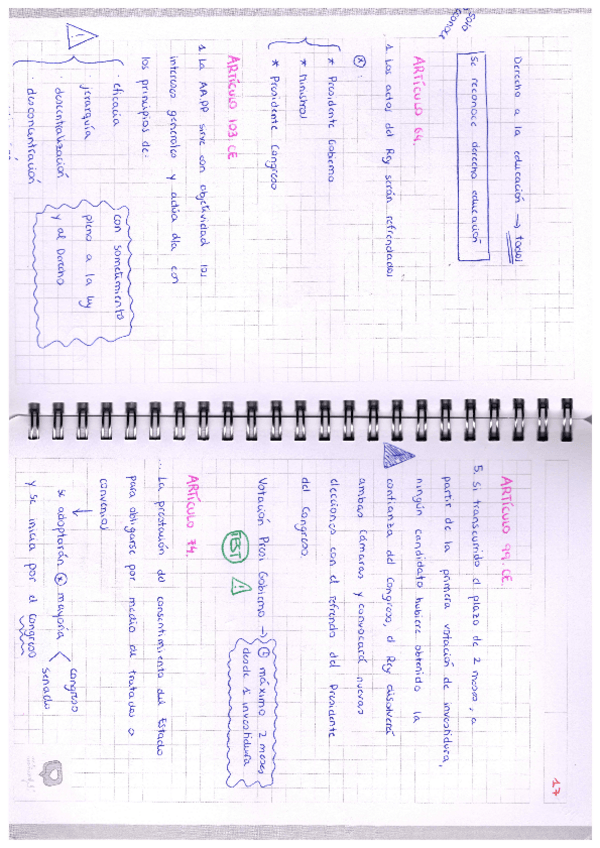 Solo
conocer
Derecho a la educación → todos
Se reconoce derecho educación
ARTÍCULO 64.
1. Los actos del Rey serán refrendados
* Presidente Gobierno
* Ministros
* Presidente Congreso
ARTÍCULO 103 CE
1. La AAPP sirve con objetividad los
intereses generales y actúa dla con
los principios de:
· eficacia
· jerarquía
· descentralización
· desconcentración
con sometimiento
pleno a la ley
y al Derecho
17
ARTÍCULO 99. CE.
5. Si transcurrido el plazo de 2 meses, a
partir de la primera votación de investidura,
ningún candidato hubiere obtenido la
confianza del Congreso, el Rey disolverá
ambas Cámaras y convocará nuevas
elecciones con el refrendo del Presidente
del Congreso
Votación Presi Gobierno → ① máximo 2 meses
desde 1 investidura
TEST
ARTÍCULO 74.
... La prestación del consentimiento del Estado
para obligarse por medio de tratados o
convenios
↓
se adoptarán * mayoría < congreso
senado
y se inicia por el congreso